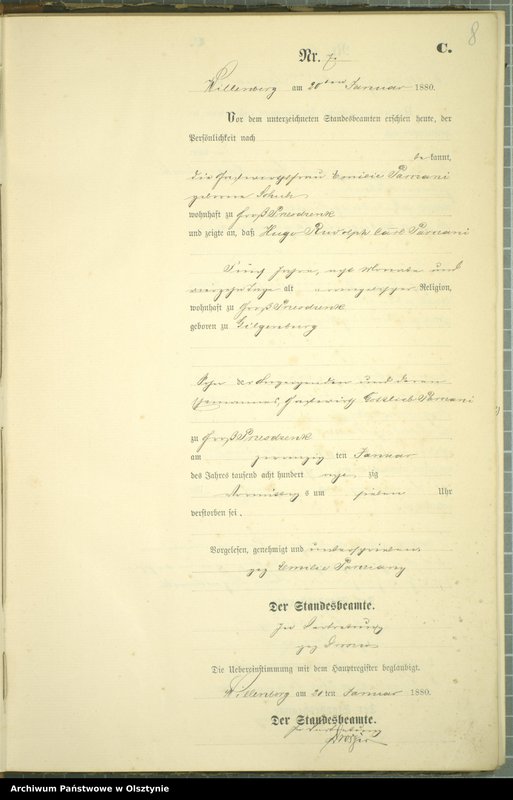 8
C.
Nr. 7.
Willenberg am 20ten Januar 1880.
Vor dem unterzeichneten Standesbeamten erschien heute, der
Persönlichkeit nach
be kannt,
die Gastwirthsfrau Emilie Parzani
geborene Schulz
wohnhaft zu Groß Przesdzenk
und zeigte an, daß Hugo Rudolph Carl Parzani
Fünf Jahre, acht Monate und
vierzehn Tage alt evangelischer Religion,
wohnhaft zu Groß Przesdzenk
geboren zu Gilgenburg
Sohn der Anzeigenden und deren
Ehemannes, Gastwirth Gottlieb Parzani
zu Groß Przesdzenk
am zwanzig ten Januar
des Jahres tausend acht hundert acht zig
Vormittags um sieben Uhr
verstorben sei.
Vorgelesen, genehmigt und unterschrieben
gez Emilie Parzany
Der Standesbeamte.
In Vertretung
gez
Die Uebereinstimmung mit dem Hauptregister beglaubigt.
Willenberg am 20 ten Januar 1880.
Der Standesbeamte.
In Vertretung
Archiwum Państwowe w Olsztynie